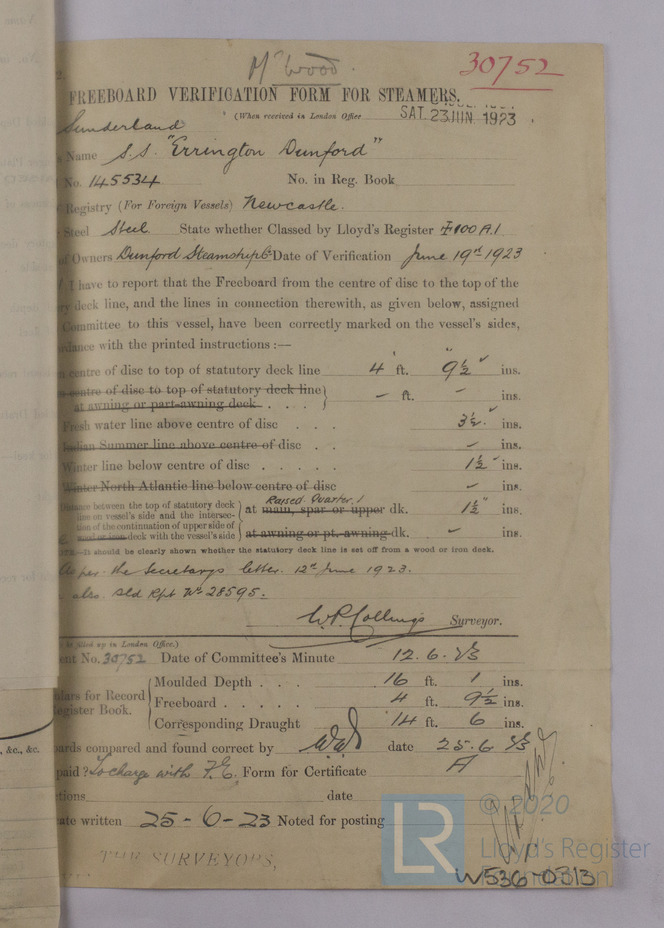 Mr Wood.
30752
FREEBOARD VERIFICATION FORM FOR STEAMERS.
(When received in London Office
SAT. 23 JUN. 1923
Sunderland
Name S.S. "Errington Dunford"
No. 145534 No. in Reg. Book
Registry (For Foreign Vessels) Newcastle.
Steel Steel State whether Classed by Lloyd's Register ✠100A.1
of Owners Dunford Steamship Co Date of Verification June 19th 1923
I have to report that the Freeboard from the centre of disc to the top of the
deck line, and the lines in connection therewith, as given below, assigned
Committee to this vessel, have been correctly marked on the vessel's sides,
dance with the printed instructions :—
centre of disc to top of statutory deck line 4 ft. 9½ ins.
centre of disc to top of statutory deck line
at awning or part-awning deck . . . - ft. - ins.
Fresh water line above centre of disc . . . 3½ ins.
Indian Summer line above centre of disc . . - ins.
Winter line below centre of disc . . . . . 1½ ins.
Winter North Atlantic line below centre of disc - ins.
Distance between the top of statutory deck
line on vessel's side and the intersec-
tion of the continuation of upper side of
wood or iron deck with the vessel's side
Raised Quarter
at main, spar or upper dk. 1½ ins.
at awning or pt. awning dk. - ins.
—It should be clearly shown whether the statutory deck line is set off from a wood or iron deck.
As per the Secretary's letter. 12th June 1923.
also Sld Rpt No 28595.
W.P. Collings Surveyor.
be filled up in London Office.)
ent No. 30752 Date of Committee's Minute 12.6.23
ulars for Record
Register Book.
Moulded Depth . . . 16 ft. 1 ins.
Freeboard . . . . . 4 ft. 9½ ins.
Corresponding Draught 14 ft. 6 ins.
oards compared and found correct by date 25.6.23
paid? No charge with F.E. Form for Certificate A
ctions date
cate written 25-6-23 Noted for posting
THE SURVEYORS,
, &c., &c.
LR
© 2020
Lloyd's Register
Foundation
W536-0313